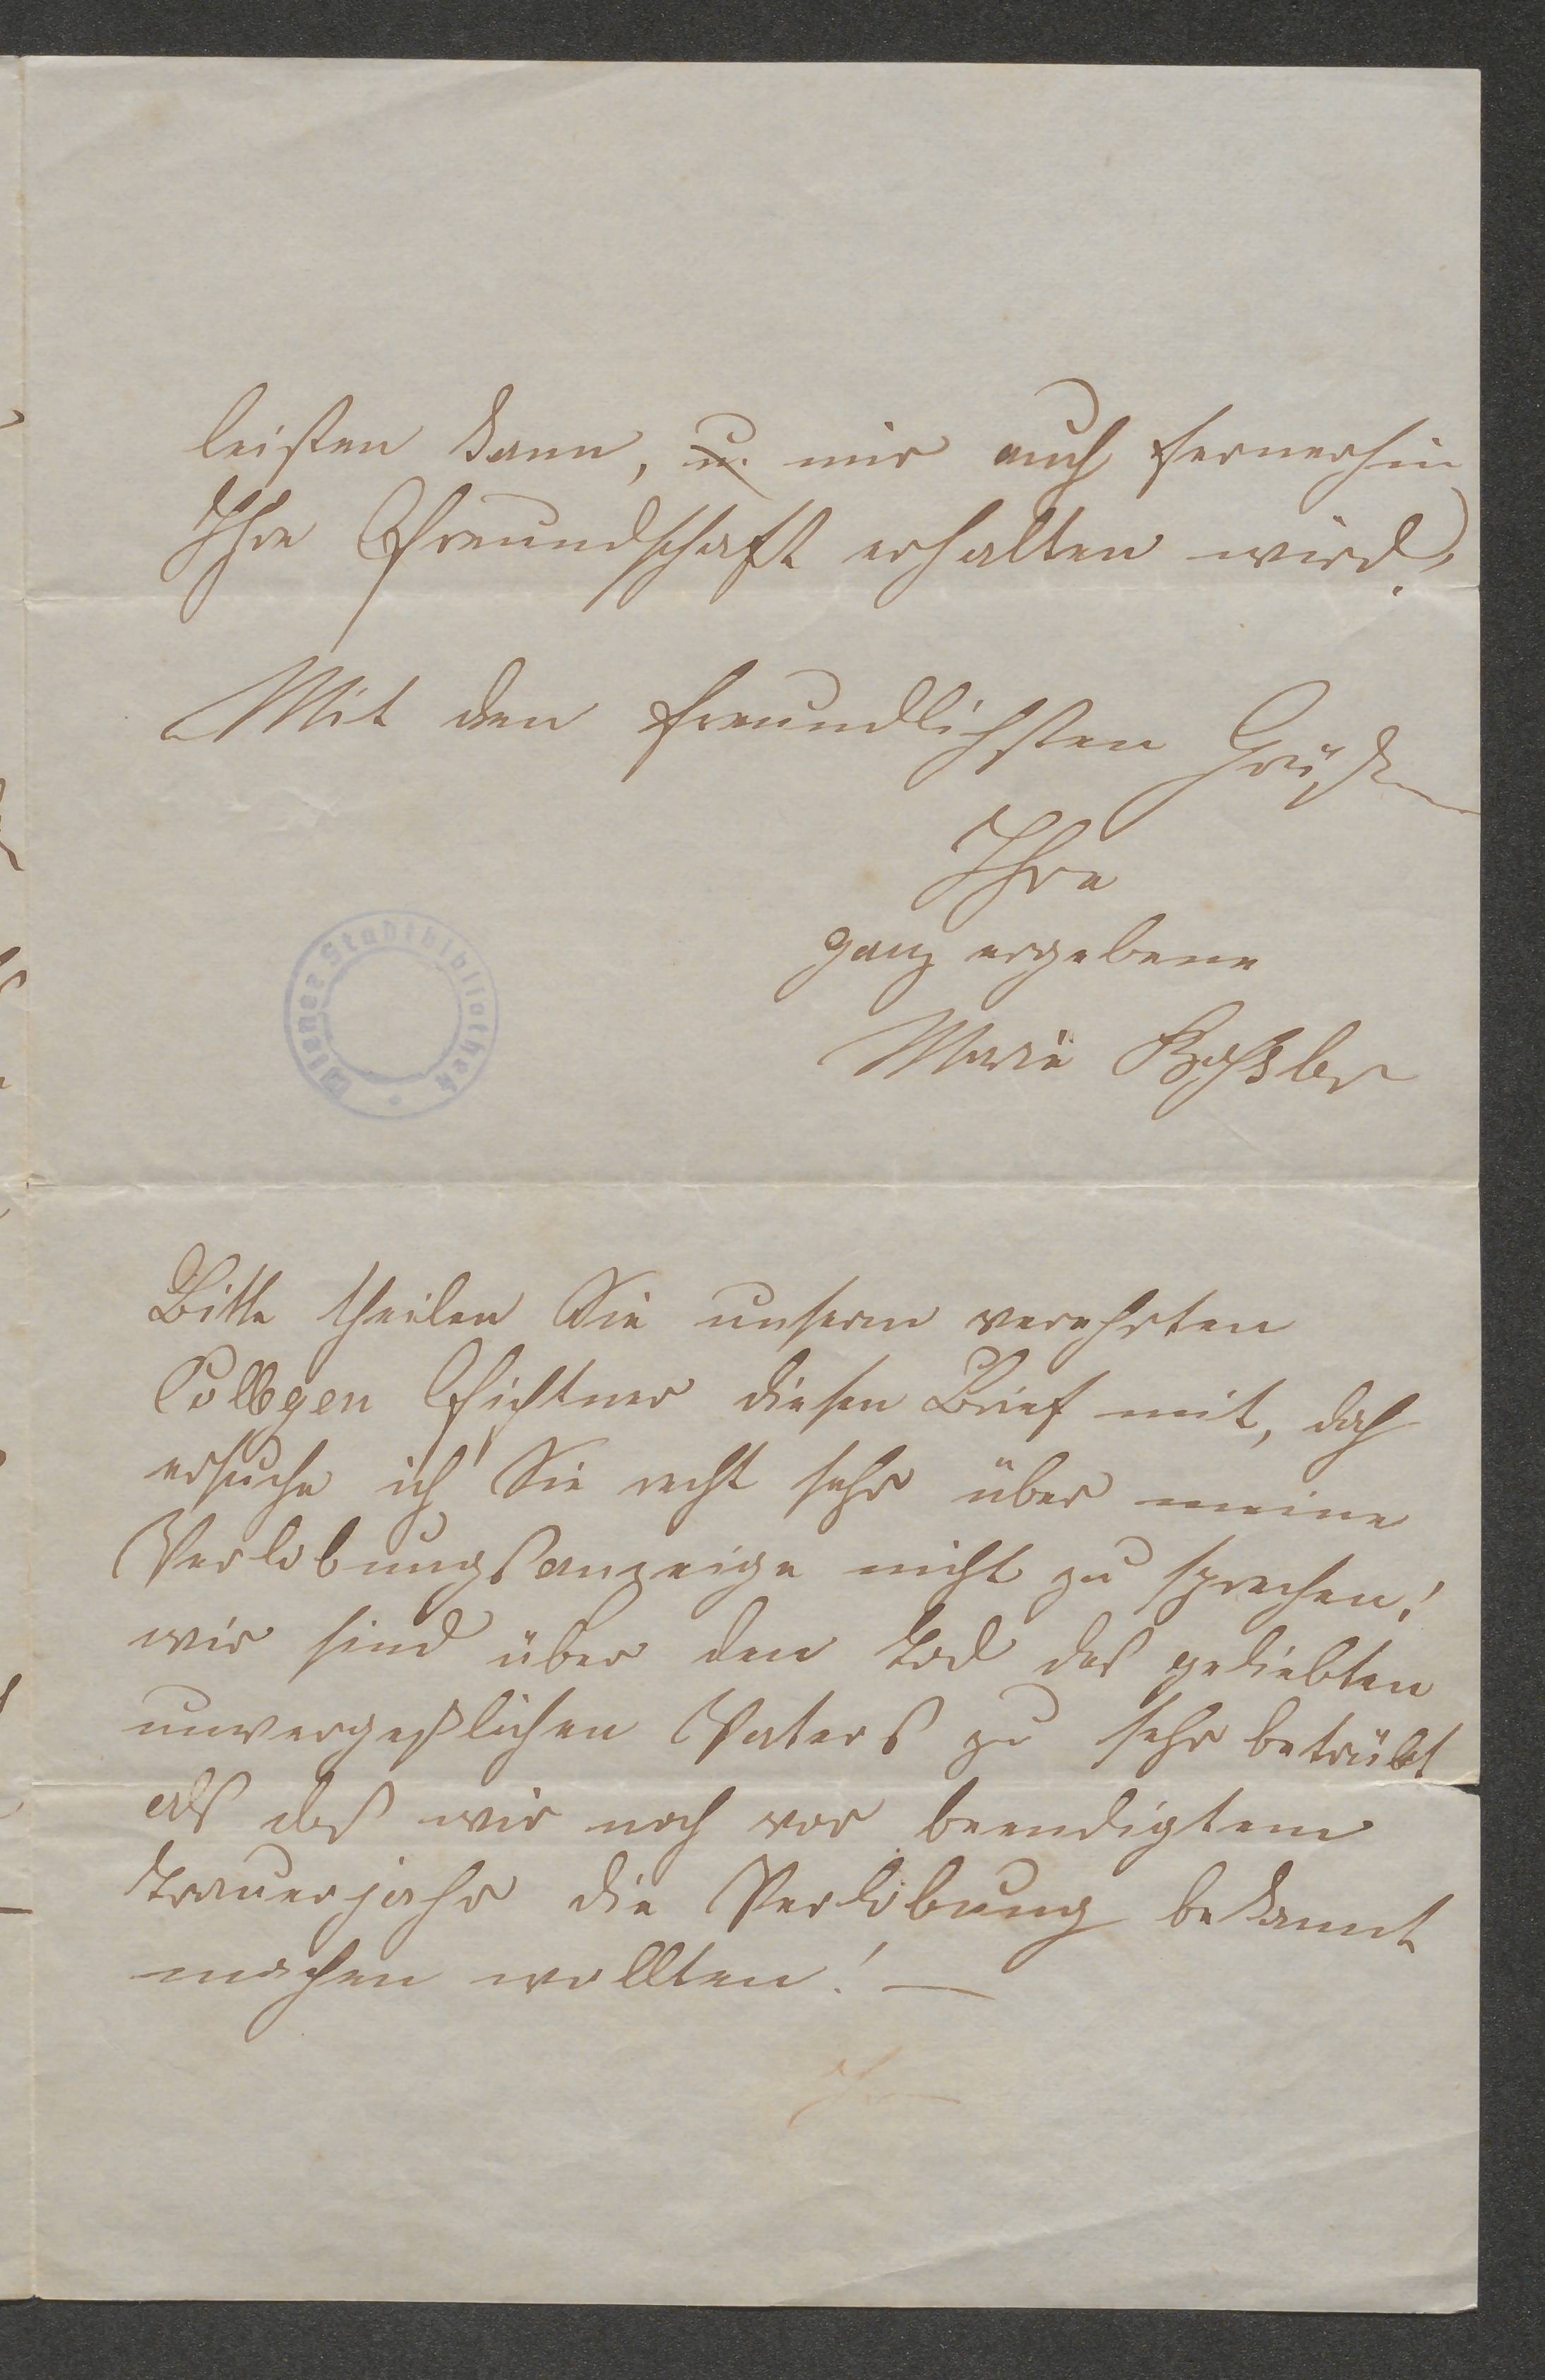 leisten kann, u. mir auch fernerhin
Ihre Freundschaft erhalten wird.
Mit den freundlichsten Grüßen
Ihre
ganz ergebene
Marie
Wiener Stadtbibliothek
Bitte theilen Sie unserm verehrten
Collegen Fichtner diesen Brief mit, doch
ersuche ich Sie recht sehr über meine
Verlobungsanzeige nicht zu sprechen!
wir sind über den Tod des geliebten
unvergeßlichen Vaters zu sehr betrübt
als daß wir noch vor beendigtem
Trauerjahr die Verlobung bekannt
machen wollten! —